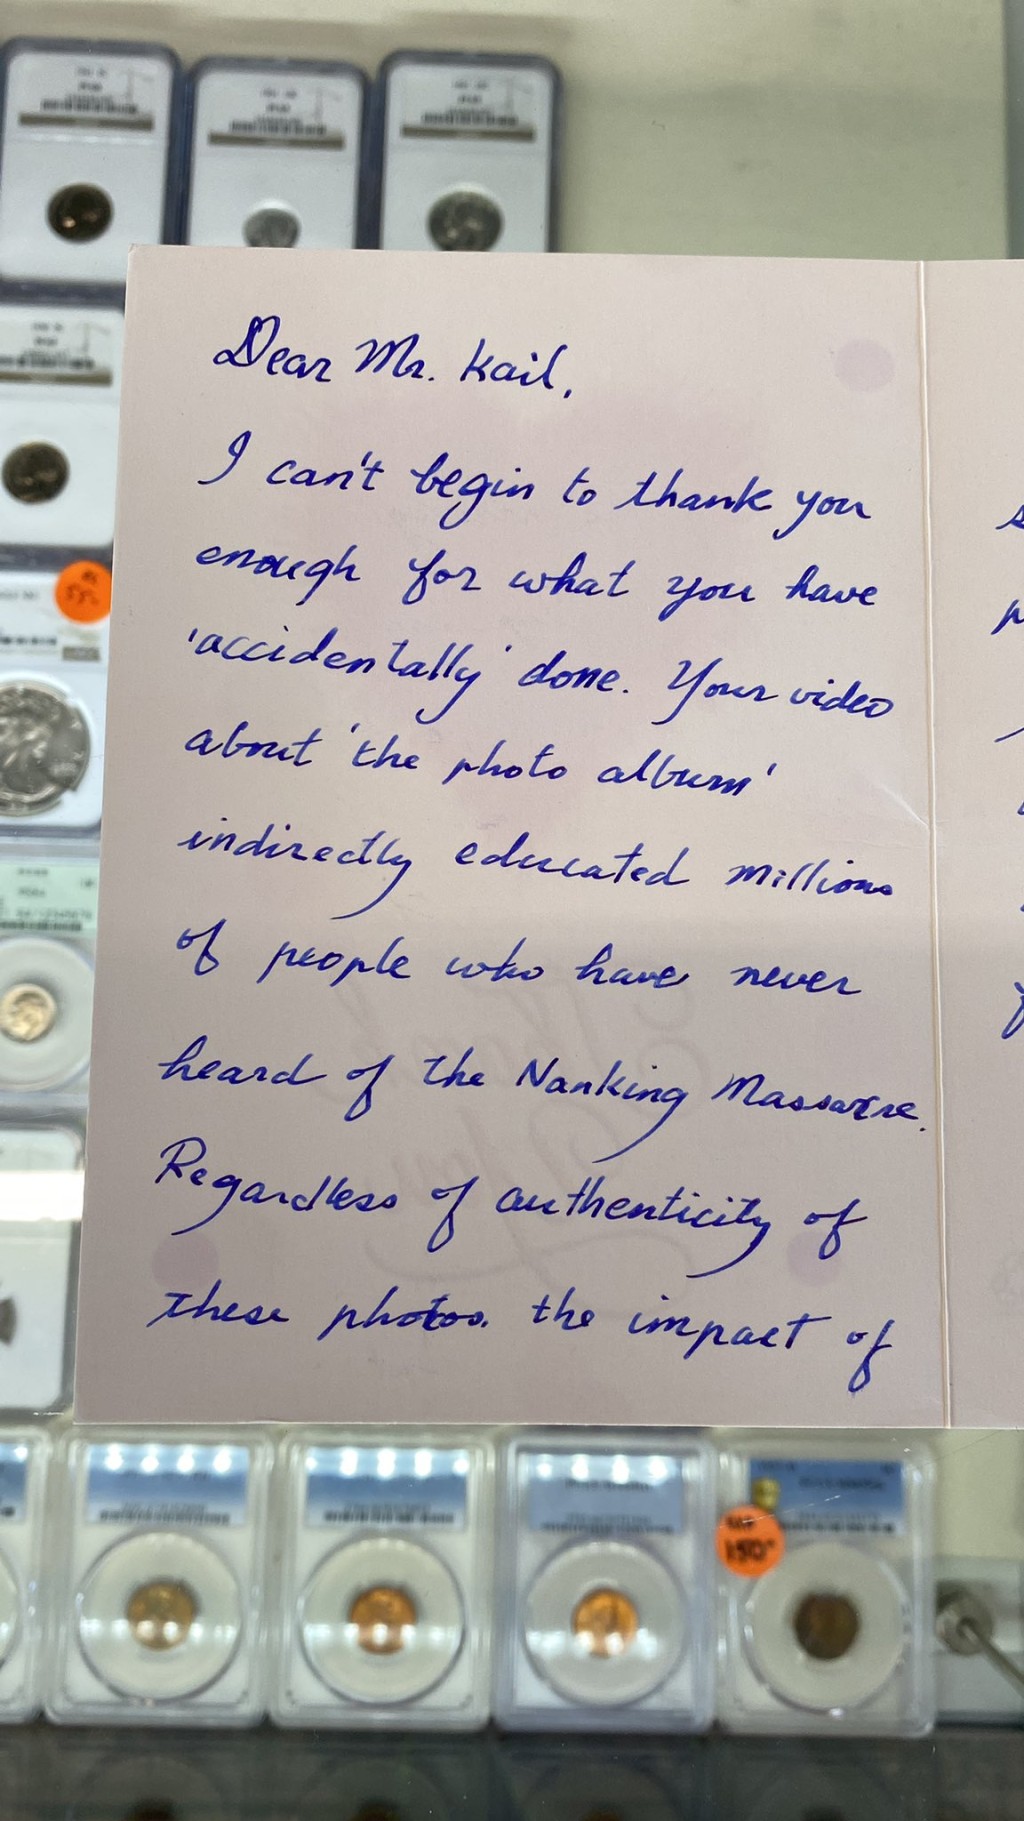 Dear Mr. Kail,
I can't begin to thank you
enough for what you have
'accidentally' done. Your video
about 'the photo album'
indirectly educated millions
of people who have never
heard of the Nanking Massacre.
Regardless of authenticity of
these photos. the impact of
150